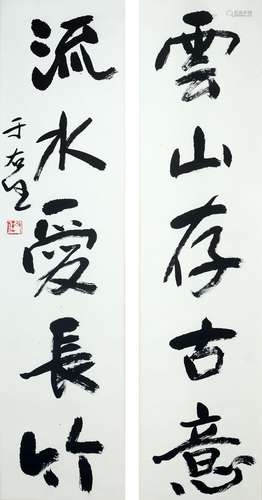 雲山存古意
流水愛長竹
于右任